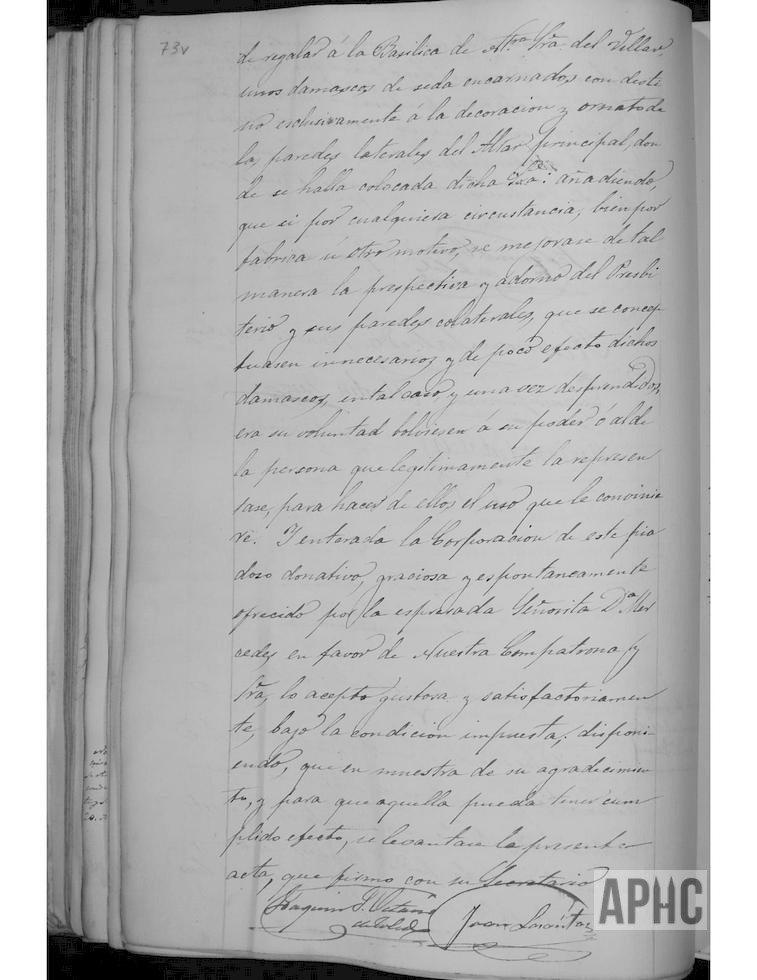 73v
de regalar á la Basilica de Ntra Sra del Villar,
unos damascos de seda encarnados, con desti
no esclusivamente á la decoracion y ornato de
las paredes laterales del Altar principal, don
de se halla colocada dicha Sra: añadiendo,
que si por cualquiera circustancia, bien por
fabrica ú otro motivo, se mejorase de tal
manera la prespectiva y adorno del Presbi
terio y sus paredes colaterales, que se concep
tuasen innecesarios y de poco efecto dichos
damascos, en tal caso y una vez desprendidos,
era su voluntad bolviesen á su poder ó al de
la persona que legitimamente la represen
tase, para hacer de ellos el uso que le convinie
re. Y enterada la Corporacion de este pia
doso donativo, graciosa y espontaneamente
ofrecido por la espresada Señorita Da Mer
cedes en favor de Nuestra Compatrona y
Sra, lo aceptó gustosa y satisfactoriamen
te, bajo la condicion impuesta; disponi
endo, que en muestra de su agradecimien
to, y para que aquella pueda tener cum
plido efecto, se levantase la presente
acta, que firmo con su Secretario
Joaquin
Juan
APHC